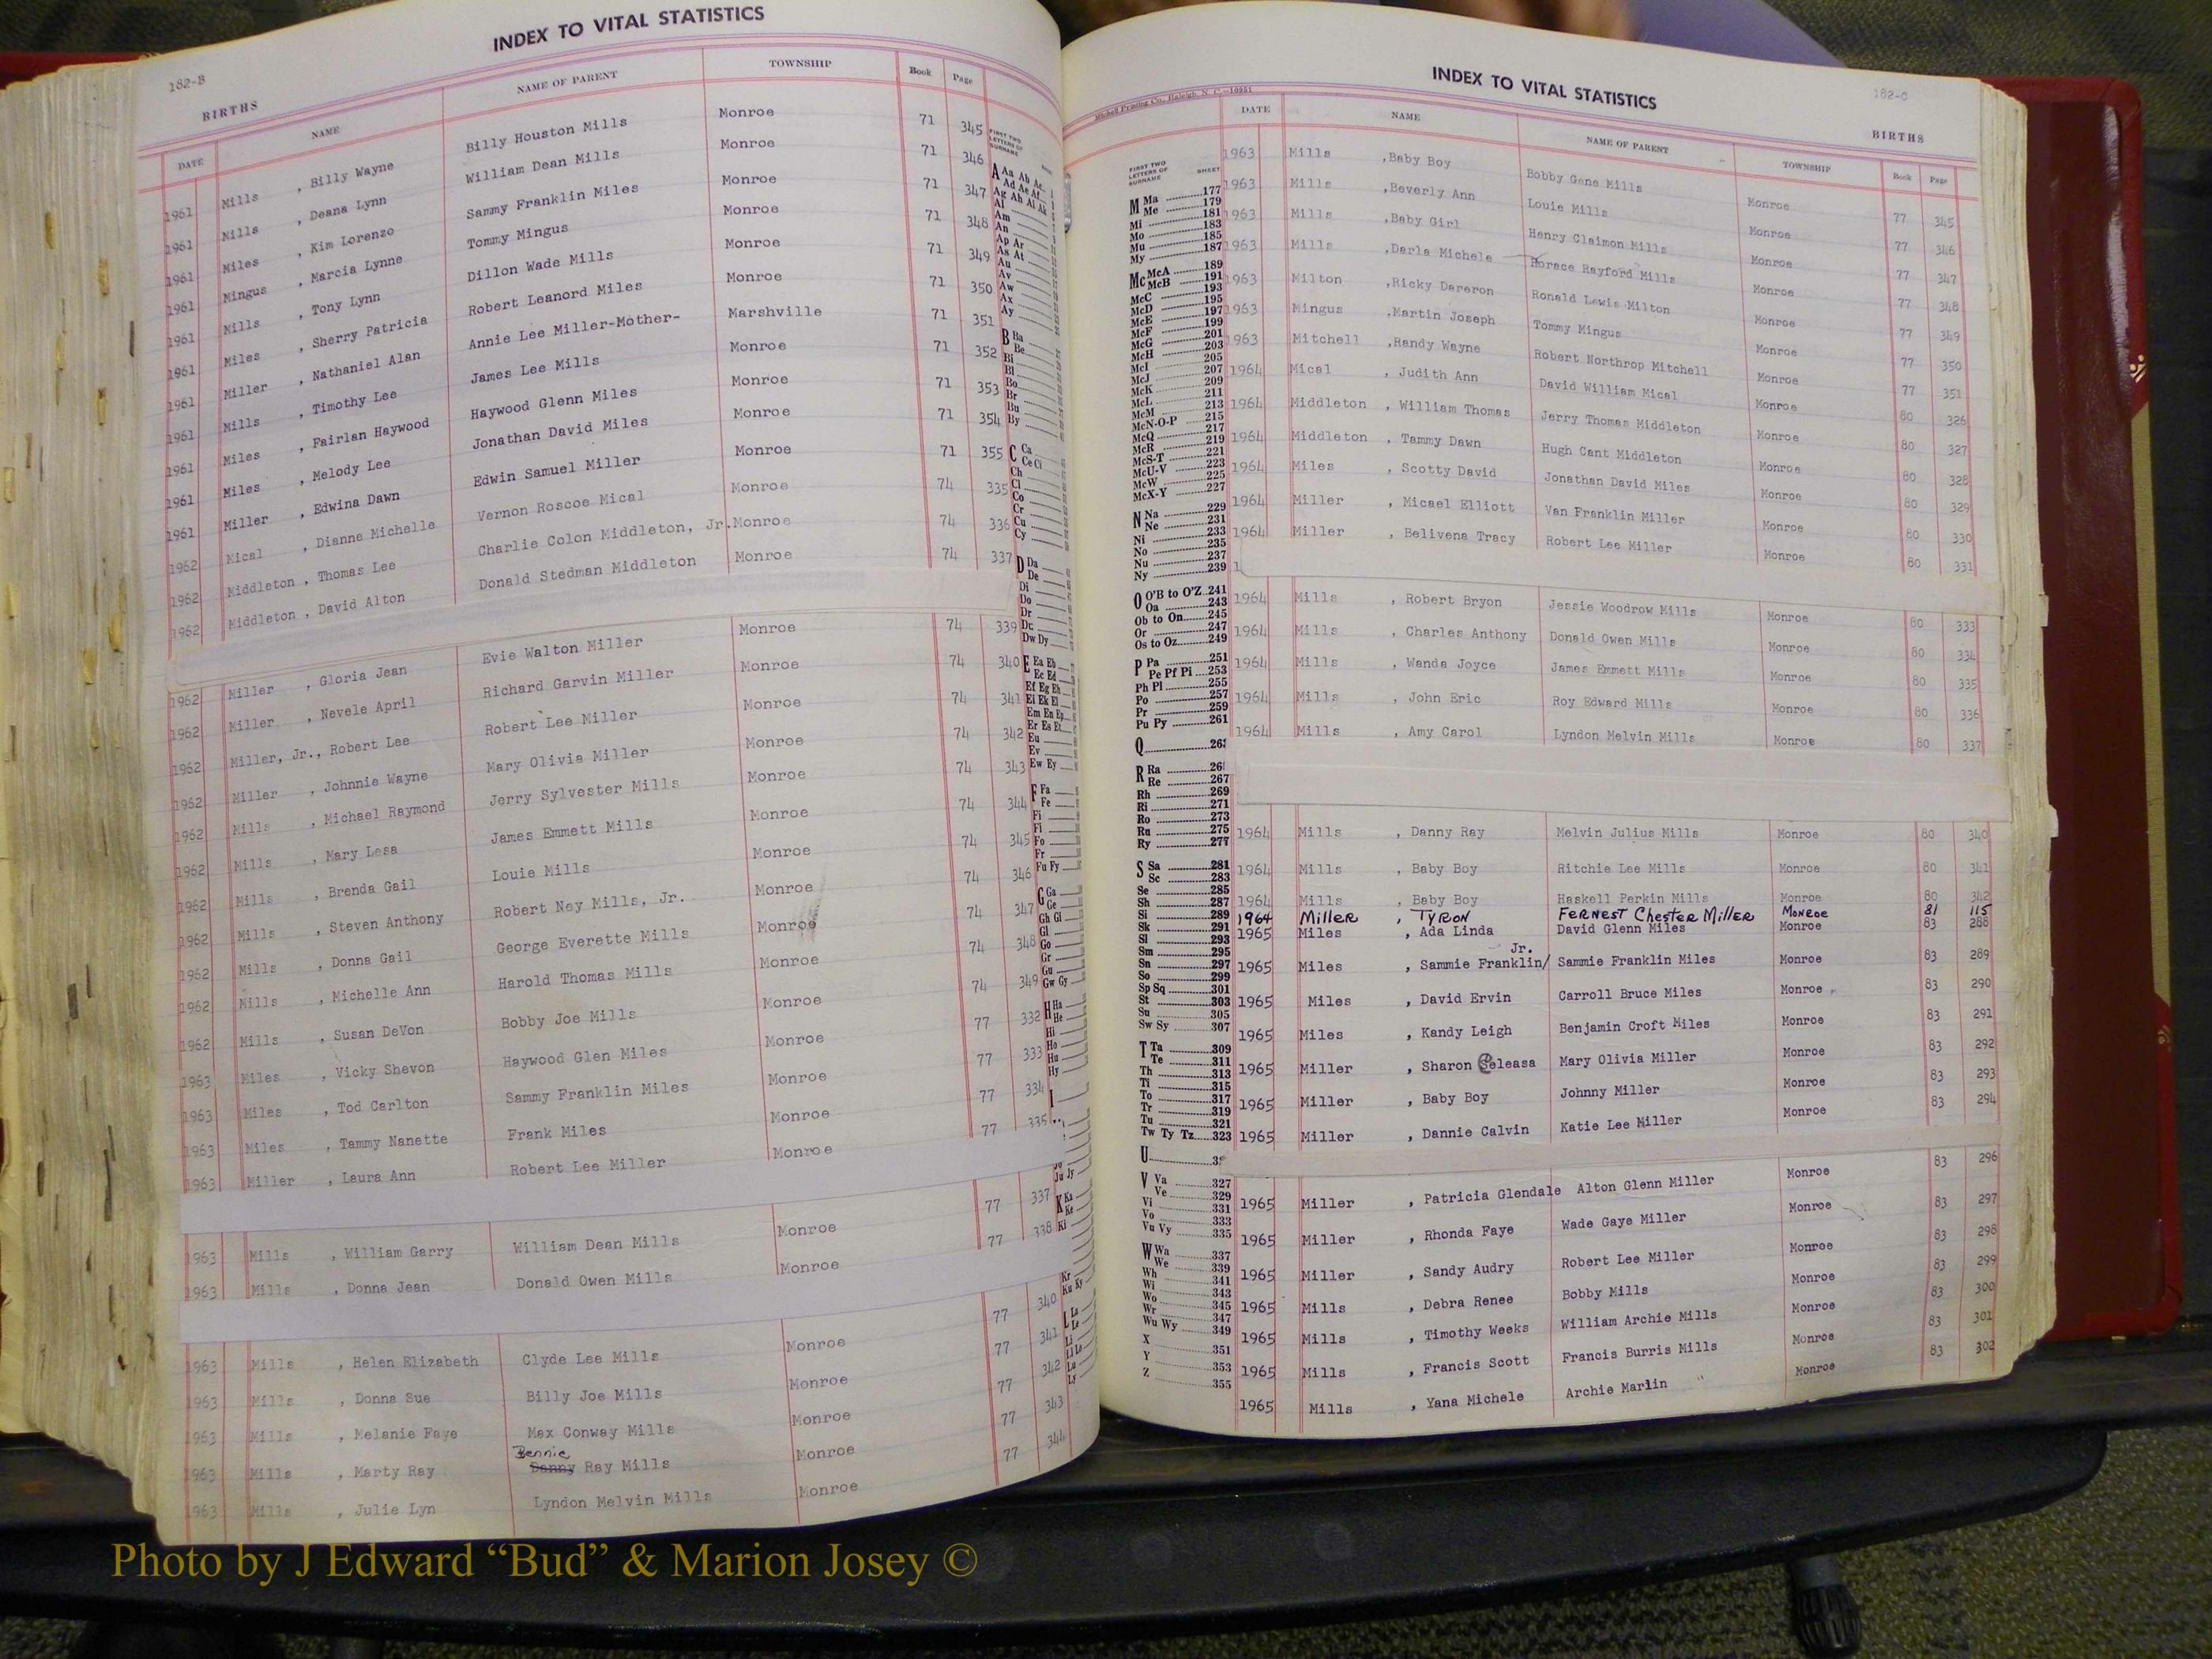 182-B
INDEX TO VITAL STATISTICS
BIRTHS
DATE NAME NAME OF PARENT TOWNSHIP Book Page
1961 Mills , Billy Wayne Billy Houston Mills Monroe 71 345
1961 Mills , Deana Lynn William Dean Mills Monroe 71 346
1961 Miles , Kim Lorenzo Sammy Franklin Miles Monroe 71 347
1961 Mingus , Marcia Lynne Tommy Mingus Monroe 71 348
1961 Mills , Tony Lynn Dillon Wade Mills Monroe 71 349
1961 Miles , Sherry Patricia Robert Leanord Miles Monroe 71 350
1961 Miller , Nathaniel Alan Annie Lee Miller-Mother- Marshville 71 351
1961 Mills , Timothy Lee James Lee Mills Monroe 71 352
1961 Miles , Fairlan Haywood Haywood Glenn Miles Monroe 71 353
1961 Miles , Melody Lee Jonathan David Miles Monroe 71 354
1961 Miller , Edwina Dawn Edwin Samuel Miller Monroe 71 355
1962 Mical , Dianne Michelle Vernon Roscoe Mical Monroe 74 335
1962 Middleton , Thomas Lee Charlie Colon Middleton, Jr. Monroe 74 336
1962 Middleton , David Alton Donald Stedman Middleton Monroe 74 337
1962 Miller , Gloria Jean Evie Walton Miller Monroe 74 339
1962 Miller , Nevele April Richard Garvin Miller Monroe 74 340
1962 Miller, Jr., Robert Lee Robert Lee Miller Monroe 74 341
1962 Miller , Johnnie Wayne Mary Olivia Miller Monroe 74 342
1962 Mills , Michael Raymond Jerry Sylvester Mills Monroe 74 343
1962 Mills , Mary Lesa James Emmett Mills Monroe 74 344
1962 Mills , Brenda Gail Louie Mills Monroe 74 345
1962 Mills , Steven Anthony Robert Ney Mills, Jr. Monroe 74 346
1962 Mills , Donna Gail George Everette Mills Monroe 74 347
1962 Mills , Michelle Ann Harold Thomas Mills Monroe 74 348
1962 Mills , Susan DeVon Bobby Joe Mills Monroe 74 349
1963 Miles , Vicky Shevon Haywood Glen Miles Monroe 77 332
1963 Miles , Tod Carlton Sammy Franklin Miles Monroe 77 333
1963 Miles , Tammy Nanette Frank Miles Monroe 77 334
1963 Miller , Laura Ann Robert Lee Miller Monroe 77 335
1963 Mills , William Garry William Dean Mills Monroe 77 337
1963 Mills , Donna Jean Donald Owen Mills Monroe 77 338
1963 Mills , Helen Elizabeth Clyde Lee Mills Monroe 77 340
1963 Mills , Donna Sue Billy Joe Mills Monroe 77 341
1963 Mills , Melanie Faye Max Conway Mills Monroe 77 342
Bennie
1963 Mills , Marty Ray Danny Ray Mills Monroe 77 343
1963 Mills , Julie Lyn Lyndon Melvin Mills Monroe 77 344
FIRST TWO LETTERS OF SURNAME
A Aa Ab Ac
Ad Ae Af
Ag Ah Ai Ak
Al
Am
An
Ap Ar
As At
Au
Av
Aw
Ax
Ay
B Ba
Be
Bi
Bl
Bo
Br
Bu
By
C Ca
Ce Ci
Ch
Cl
Co
Cr
Cu
Cy
D Da
De
Di
Do
Dr
Du
Dw Dy
E Ea Eb
Ec Ed
Ef Eg Eh
Ei Ek El
Em En Ep
Er Es Et
Eu
Ev
Ew Ey
F Fa
Fe
Fi
Fl
Fo
Fr
Fu Fy
G Ga
Ge
Gh Gi
Gl
Go
Gr
Gu
Gw Gy
H Ha
He
Hi
Ho
Hu
Hy
I
Ju Jy
K Ka
Ke
Ki
Kr
Ku Ky
L La
Le
Li
Lo
Lu
Ly
INDEX TO VITAL STATISTICS
182-C
Mitchell Printing Co., Raleigh, N. C.—10951
BIRTHS
DATE NAME NAME OF PARENT TOWNSHIP Book Page
FIRST TWO LETTERS OF SURNAME SHEET
M Ma 177
Me 179
Mi 181
Mo 183
Mu 185
My 187
Mc McA 189
McB 191
McC 193
McD 195
McE 197
McF 199
McG 201
McH 203
McI 205
McJ 207
McK 209
McL 211
McM 213
McN-O-P 215
McQ 217
McR 219
McS-T 221
McU-V 223
McW 225
McX-Y 227
N Na 229
Ne 231
Ni 233
No 235
Nu 237
Ny 239
O O'B to O'Z 241
Oa 243
Ob to On 245
Or 247
Os to Oz 249
P Pa 251
Pe Pf Pi 253
Ph Pl 255
Po 257
Pr 259
Pu Py 261
Q
R Ra
Re 267
Rh 269
Ri 271
Ro 273
Ru 275
Ry 277
S Sa 281
Sc 283
Se 285
Sh 287
Si 289
Sk 291
Sl 293
Sm 295
Sn 297
So 299
Sp Sq 301
St 303
Su 305
Sw Sy 307
T Ta 309
Te 311
Th 313
Ti 315
To 317
Tr 319
Tu 321
Tw Ty Tz 323
U
V Va 327
Ve 329
Vi 331
Vo 333
Vu Vy 335
W Wa 337
We 339
Wh 341
Wi 343
Wo 345
Wr 347
Wu Wy 349
X 351
Y 353
Z 355
1963 Mills ,Baby Boy Bobby Gene Mills Monroe 77 345
1963 Mills ,Beverly Ann Louie Mills Monroe 77 346
1963 Mills ,Baby Girl Henry Claimon Mills Monroe 77 347
1963 Mills ,Darla Michele Horace Rayford Mills Monroe 77 348
1963 Milton ,Ricky Dareron Ronald Lewis Milton Monroe 77 349
1963 Mingus ,Martin Joseph Tommy Mingus Monroe 77 350
1963 Mitchell ,Randy Wayne Robert Northrop Mitchell Monroe 77 351
1964 Mical , Judith Ann David William Mical Monroe 80 326
1964 Middleton , William Thomas Jerry Thomas Middleton Monroe 80 327
1964 Middleton , Tammy Dawn Hugh Cant Middleton Monroe 80 328
1964 Miles , Scotty David Jonathan David Miles Monroe 80 329
1964 Miller , Micael Elliott Van Franklin Miller Monroe 80 330
1964 Miller , Belivena Tracy Robert Lee Miller Monroe 80 331
1964 Mills , Robert Bryon Jessie Woodrow Mills Monroe 80 333
1964 Mills , Charles Anthony Donald Owen Mills Monroe 80 334
1964 Mills , Wanda Joyce James Emmett Mills Monroe 80 335
1964 Mills , John Eric Roy Edward Mills Monroe 80 336
1964 Mills , Amy Carol Lyndon Melvin Mills Monroe 80 337
1964 Mills , Danny Ray Melvin Julius Mills Monroe 80 340
1964 Mills , Baby Boy Ritchie Lee Mills Monroe 80 341
1964 Mills , Baby Boy Haskell Perkin Mills Monroe 80 342
1964 Miller , TYRON FERNEST Chester Miller Monroe 81 115
1965 Miles , Ada Linda David Glenn Miles Monroe 83 288
Jr.
1965 Miles , Sammie Franklin/ Sammie Franklin Miles Monroe 83 289
1965 Miles , David Ervin Carroll Bruce Miles Monroe 83 290
1965 Miles , Kandy Leigh Benjamin Croft Miles Monroe 83 291
1965 Miller , Sharon Celeasa Mary Olivia Miller Monroe 83 292
1965 Miller , Baby Boy Johnny Miller Monroe 83 293
1965 Miller , Dannie Calvin Katie Lee Miller Monroe 83 294
1965 Miller , Patricia Glendale Alton Glenn Miller Monroe 83 296
1965 Miller , Rhonda Faye Wade Gaye Miller Monroe 83 297
1965 Miller , Sandy Audry Robert Lee Miller Monroe 83 298
1965 Mills , Debra Renee Bobby Mills Monroe 83 299
1965 Mills , Timothy Weeks William Archie Mills Monroe 83 300
1965 Mills , Francis Scott Francis Burris Mills Monroe 83 301
1965 Mills , Yana Michele Archie Marlin " Monroe 83 302
Photo by J Edward “Bud” & Marion Josey ©